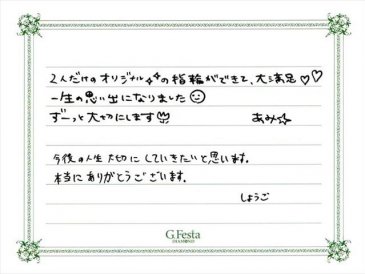 2人だけのオリジナル☆☆の指輪ができて、大満足♡♡
一生の思い出になりました☺
ずーっと大切にします
あみ☆
今後の人生大切にしていきたいと思います。
本当にありがとうございます。
しょうご
G.Festa
DIAMOND